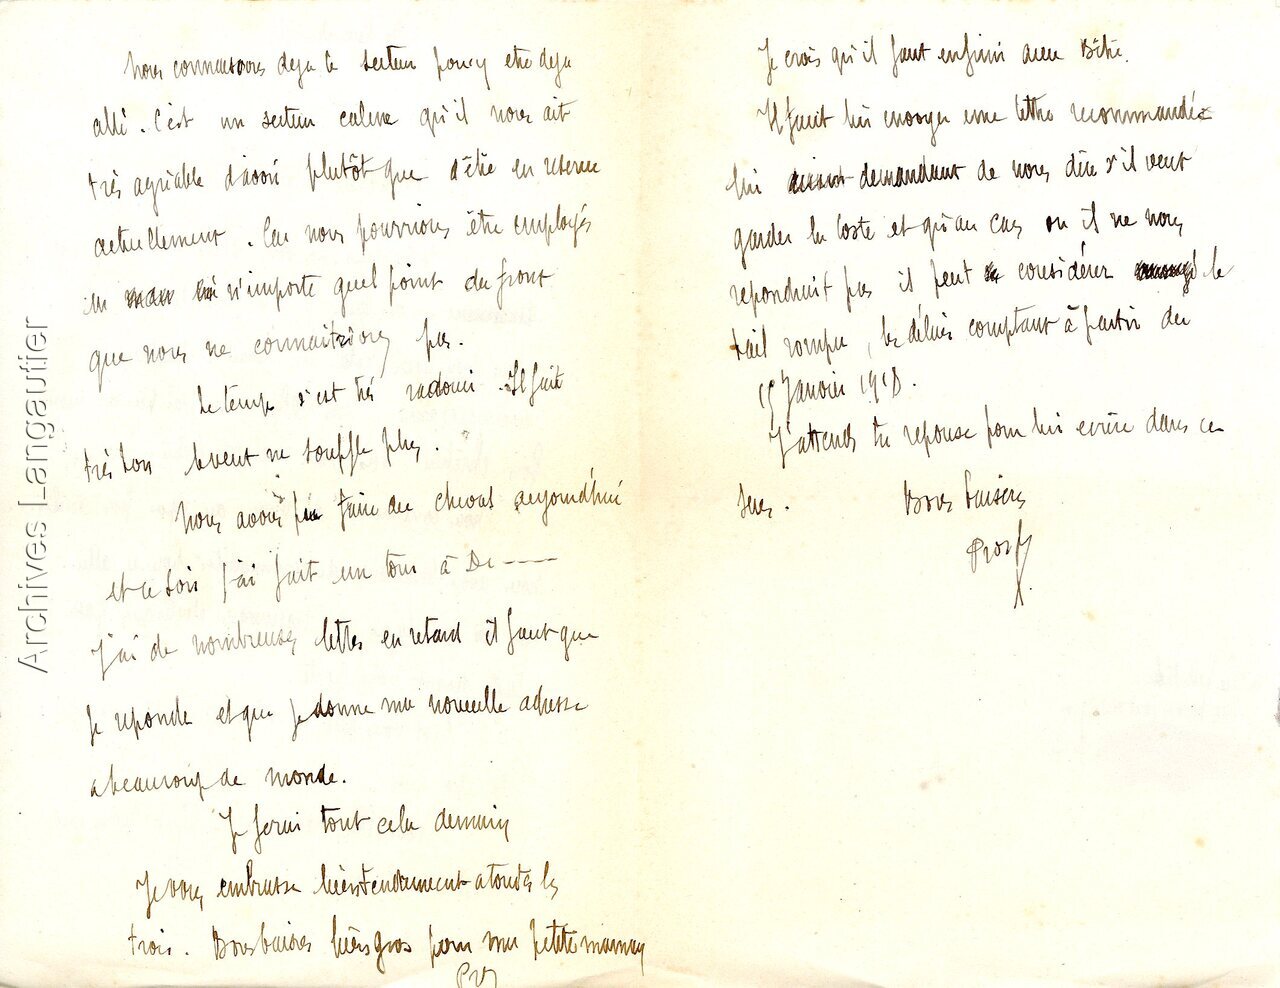 Nous connaissons deja le secteur pour y etre deja
allé. C'est un secteur calme qu'il nous ait
très agréable d'avoir plutôt que d'être en reserve
actuellement. Car nous pourrions être employés
en n'importe quel point du front
que nous ne connaitrions pas.
Le temps s'est très radouci. Il fait
très bon le vent ne souffle plus.
Nous avons pu faire du cheval aujourd'hui
et ce soir j'ai fait un tour à De ----
J'ai de nombreuses lettres en retard il faut que
je reponde et que je donne ma nouvelle adresse
a beaucoup de monde.
Je ferai tout cela demain
Je vous embrasse bien tendrement a toutes les
trois. Bons baisers bien gros pour ma petite maman
Je crois qu'il faut en finir avec
Il faut lui envoyer une lettre recommandée
lui demandant de nous dire s'il veut
garder la et qu'au cas ou il ne nous
repondrait pas il peut considérer le
bail rompu, les délais comptant à partir du
15 Janvier 1918.
J'attends ta reponse pour lui ecrire dans ce
sens. Bons baisers
Archives Langautier